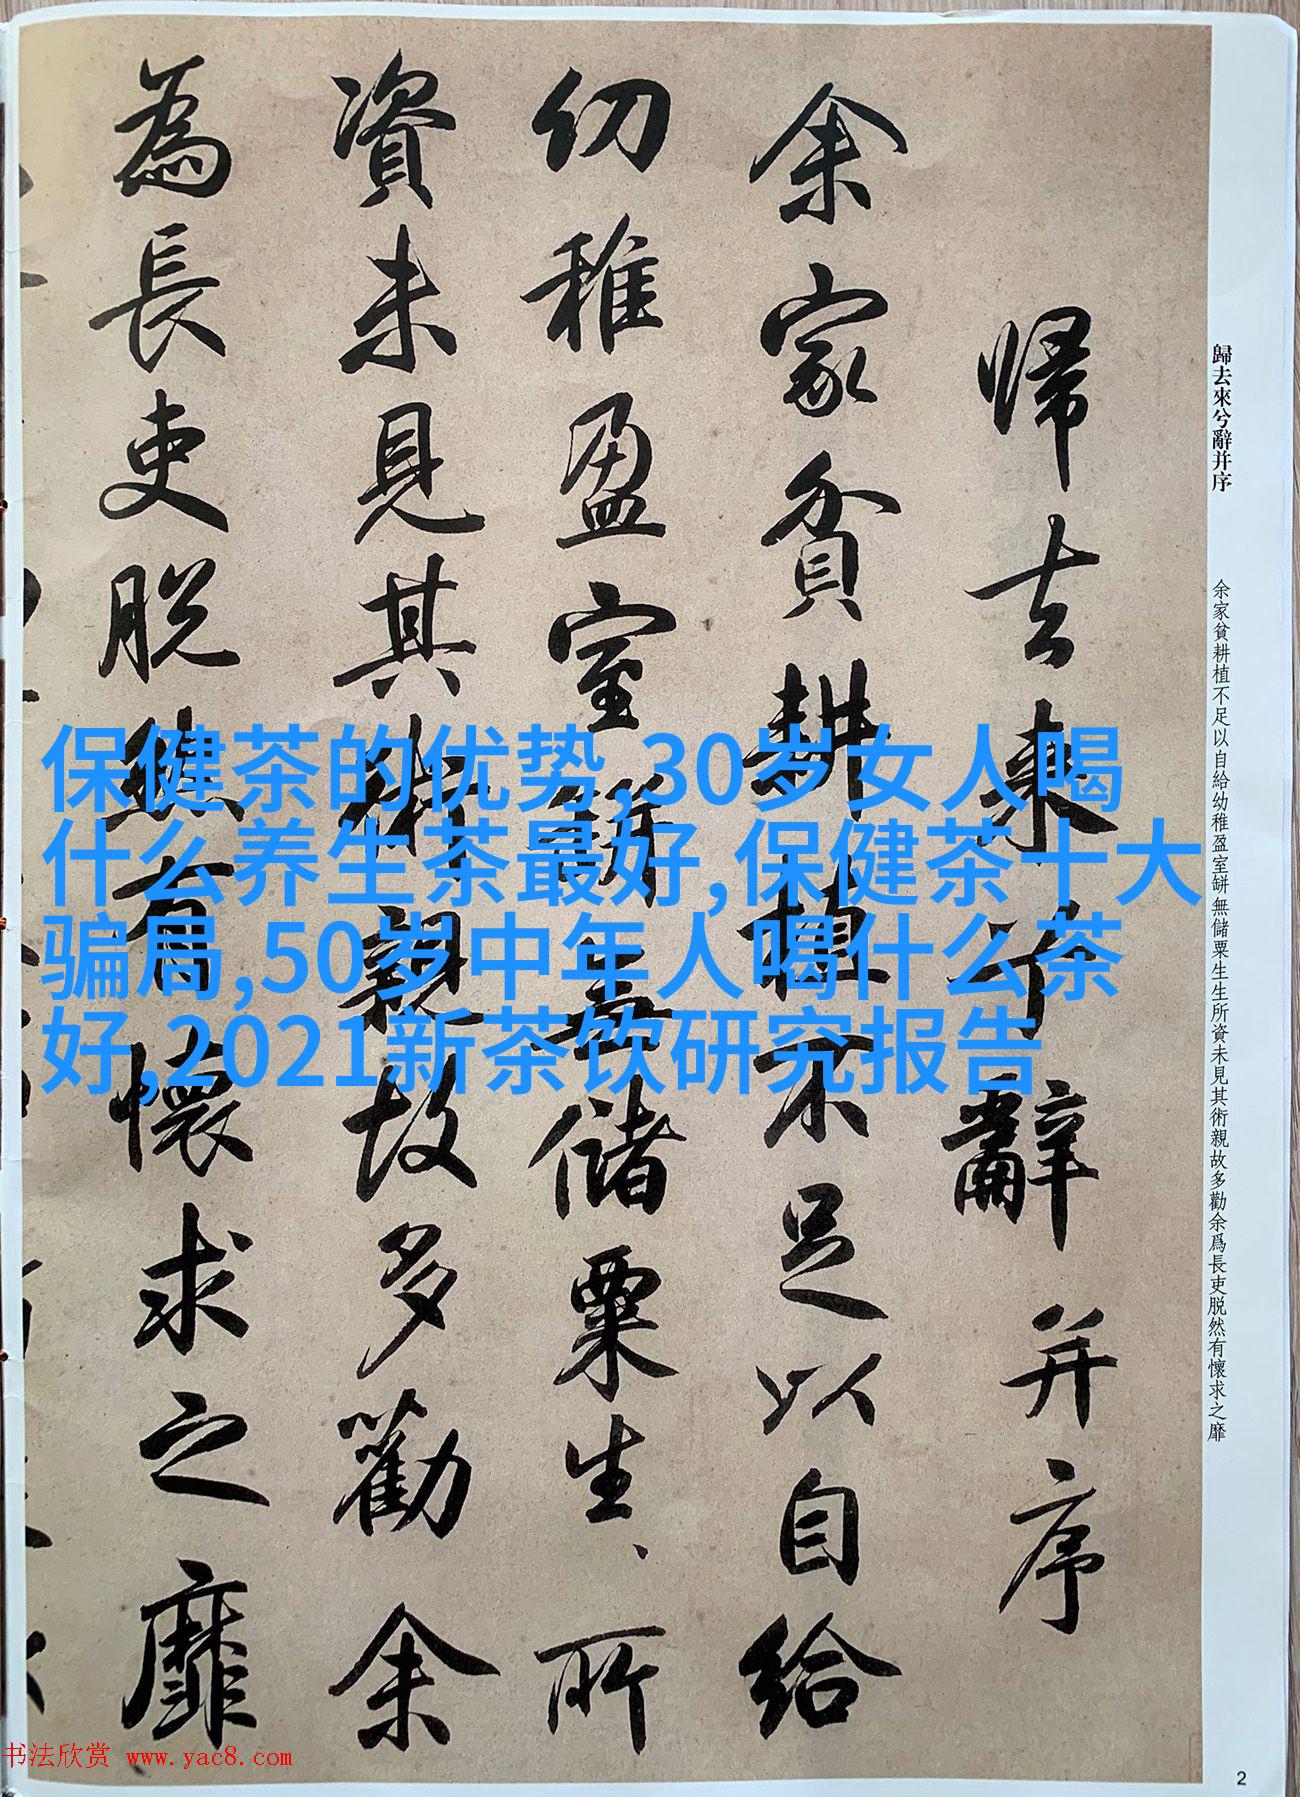 歸去來兮辭并序
余家貧耕植不足以自給幼稚盈室缾無儲粟生生所資未見其術親故多勸余爲長吏脱然有懷求之靡
歸去來兮辭并序
余家貧耕植不足以自給
幼稚盈室缾無儲粟生、所
資未見其術親故多勸余
為長吏脱然有懷求之靡
保健茶的优势,30岁女人喝
什么养生茶最好,保健茶十大
骗局,50岁中年人喝什么茶
好,2021新茶饮研究报告
书法欣赏 www.yac8.com
2